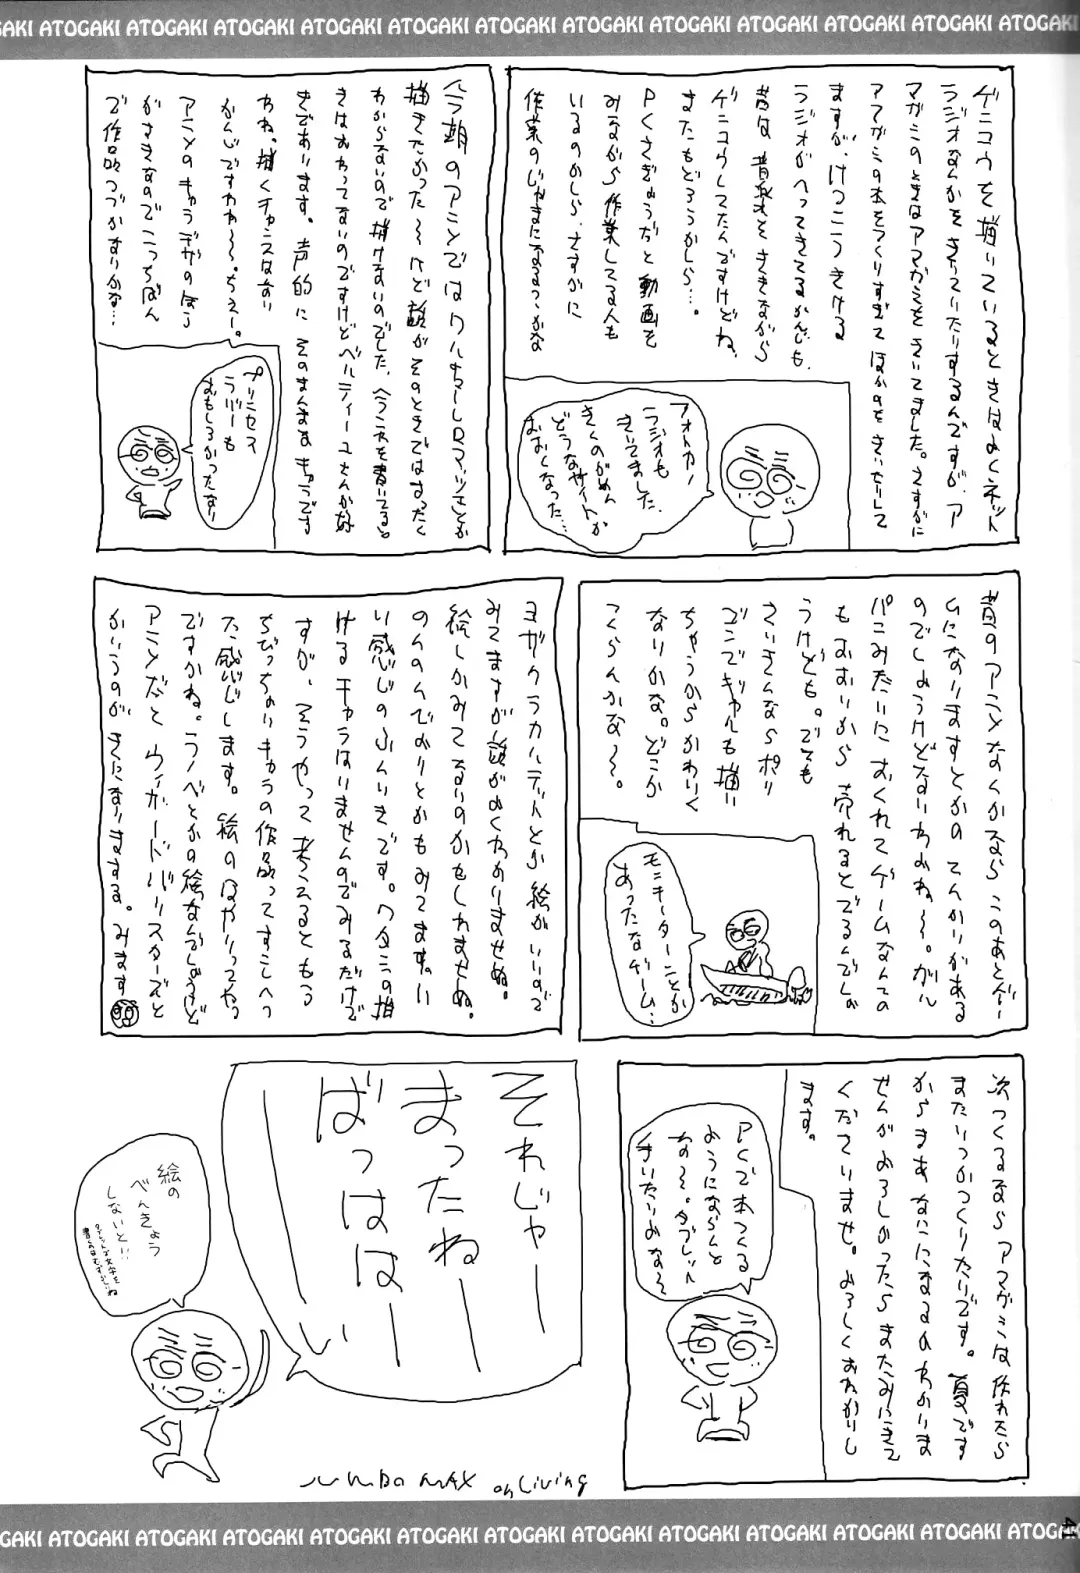 ATOGAKI ATOGAKI ATOGAKI ATOGAKI ATOGAKI ATOGAKI ATOGAKI ATOGAKI ATOGAKI ATOGAKI ATOGAKI ATOGAKI ATOGAKI
ゲンコウを描いているときはよくネット
ラジオなんかをきいていたりするんですが、ア
マガミのときはアマガミをきいてました。さすがに
アマガミの本をつくりすぎてほかのをきいたりして
ますが、けっこうきける
ラジオがへってきてるかんじも。
昔は音楽をききながら
ゲンコウしてたんですけどね、
またもどろうかしら…。
PCさぎょうだと動画を
みながら作業してる人も
いるのかしら、さすがに
作業のじゃまになるっつかな
フォトカノ
ラジオも
きいてました。
きくのがめん
どうなサイトが
おおくなった…
描きたかった〜けど
わからないので描けないのでした、
きはおわってないのですけどベルティーユさんが好
きであります。声的にそのまんまなキャラです
わね。描くチャンスはない
かんじですわ〜。ちぇー。
アニメのキャラデザのほう
がすきなのでこっちばん
で作品つづかないかな…
プリンセス
ラバーも
おもしろかったなり
昔のアニメなんかならこのあとゲー
ムになりますとかのてんかいがある
のでしょうけどないわよね〜。ガル
パンみたいにおくれてゲームなんての
もおおいから売れるとでるんでしょ
うけども。でも
さいきんならポリ
ゴンでギャルも描い
ちゃうからかわいく
なりかな。どこか
つくらんかな〜。
モニターターンとか
あったなゲーム…
ヨザクラカルテットとか絵がいいので
みてますが話がよくわかりませぬ。
絵しかみてないのかもしれませぬ。
のんのんびよりとかもみてます。いい
い感じのふんいきです。ワタシの描
けるキャラはいませんのでみるだけで
すが、そうやって考えるともう
ちびっちゃいキャラの作品ってすこしへっ
た感じします。絵のはやりってやつ
ですかね。ラノベとかの絵なんでしょうけど
アニメだとウィザードバリスターズと
かいうのがきになりまする。みます
次つくるならアマガミは作れたら
またいつかつくりたいです。夏です
からまあなにになるのかわかりま
せんがよろしかったらまたみにきて
くださいませ。よろしくおねがいし
ます。
PCで本つくる
ようにならんと
なぁ。タブレット
それじゃー
まったねー
ばっはは
ーい
絵の
べんきょう
しないと!!
JUMBO MAX
on Living
ATOGAKI ATOGAKI ATOGAKI ATOGAKI ATOGAKI ATOGAKI ATOGAKI ATOGAKI ATOGAKI ATOGAKI ATOGAKI ATOGAKI ATOGAKI
41